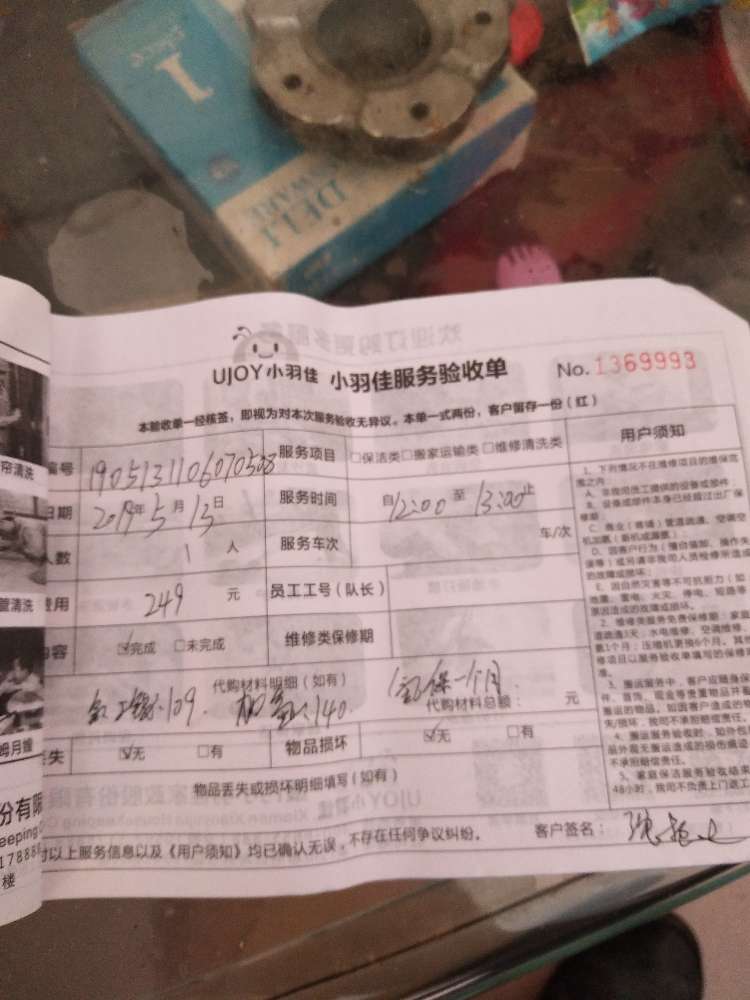 DELI
WARE
欢迎订购更多服
UJOY小羽佳 小羽佳服务验收单 No. 1369993
本验收单一经核签，即视为对本次服务验收无异议。本单一式两份，客户留存一份（红）
编号 1905131106070508 服务项目 □保洁类□搬家运输类□维修清洗类
日期 2019年5月13日 服务时间 自12:00至13:00止
人数 1人 服务车次 车/次
费用 249 元 员工工号（队长）
内容 ☑完成 □未完成 维修类保修期
代购材料明细（如有）
109. 加氢:140. 保一个月
代购材料总额： 元
失 ☑无 □有 物品损坏 ☑无 □有
物品丢失或损坏明细填写（如有）
对以上服务信息以及《用户须知》均已确认无误，不存在任何争议纠纷。 客户签名：
用户须知
1、下列情况不在维修项目的维保范
围之内：
A、非我司员工提供的设备或部件；
B、设备或部件本身已经超过出厂保
修期；
C、商业（商铺）管道疏通、空调空
机加氨（新机或漏氨）；
D、因客户行为（擅自装卸、操作失
误等）或另请非我司人员检修所造成
的故障或损坏；
E、因自然灾害等不可抗耐力（如
地震、雷电、火灾、停电、短路等
原因造成的故障或损坏。
2、维修类服务免费保修期：家庭
道疏通3天；水电维修、空调维修、
氨1个月；压缩机更换6个月。其
修项目以服务验收单填写的保修期
准。
3、搬运服务中，客户应随身保
件、首饰、现金等贵重物品并
搬运的物品。如因客户造成的
失/损坏，我司不承担赔偿责任。
4、搬运服务验收时，如外包
品外观无搬运造成的损伤痕迹
不承担赔偿责任。
5、家庭保洁服务验收结束
48小时，我司不负责上门返工
帘清洗
管清洗
姆月嫂
份有限
eeping
178888
楼